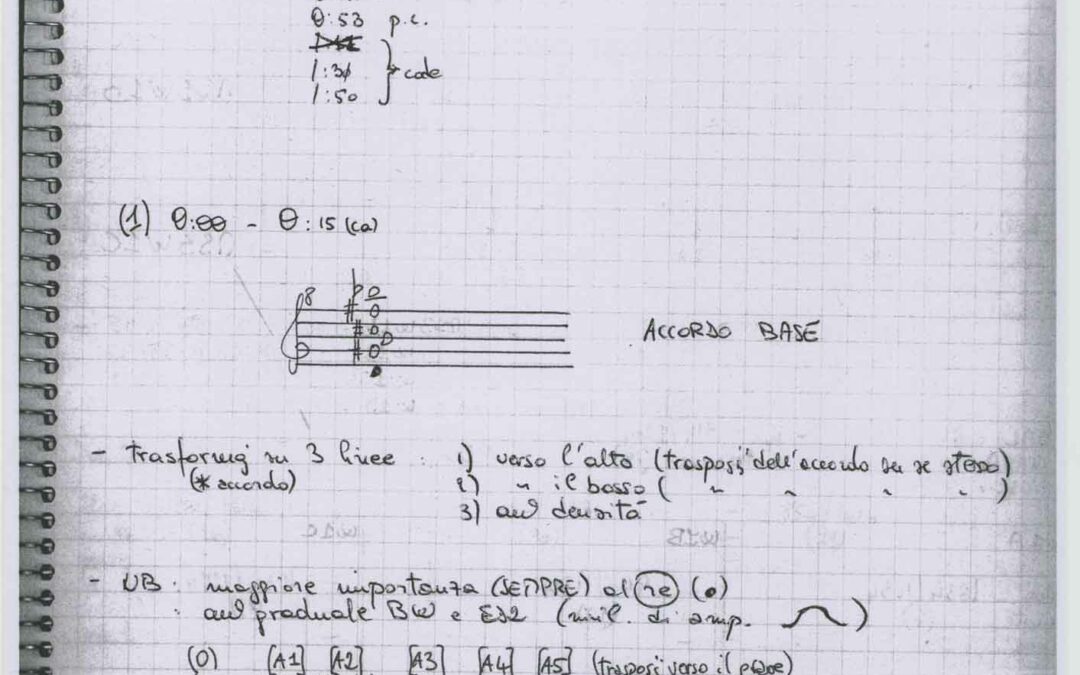 0:53 p.c.
1:50
code
(1) 0:00 - 0:15 (ca)
8
ACCORDO BASE
- Trasformaz su 3 linee : 1) verso l'alto (trasposiz dell'accordo su se stesso)
(* accordo) 2) " il basso ( " " " " )
3) aum densità
- NB : maggiore importanza (SEMPRE) al re (o)
: aum graduale BW e (simil. di amp. )
(0) [A1] [A2] [A3] [A4] [A5] (trasposiz verso il